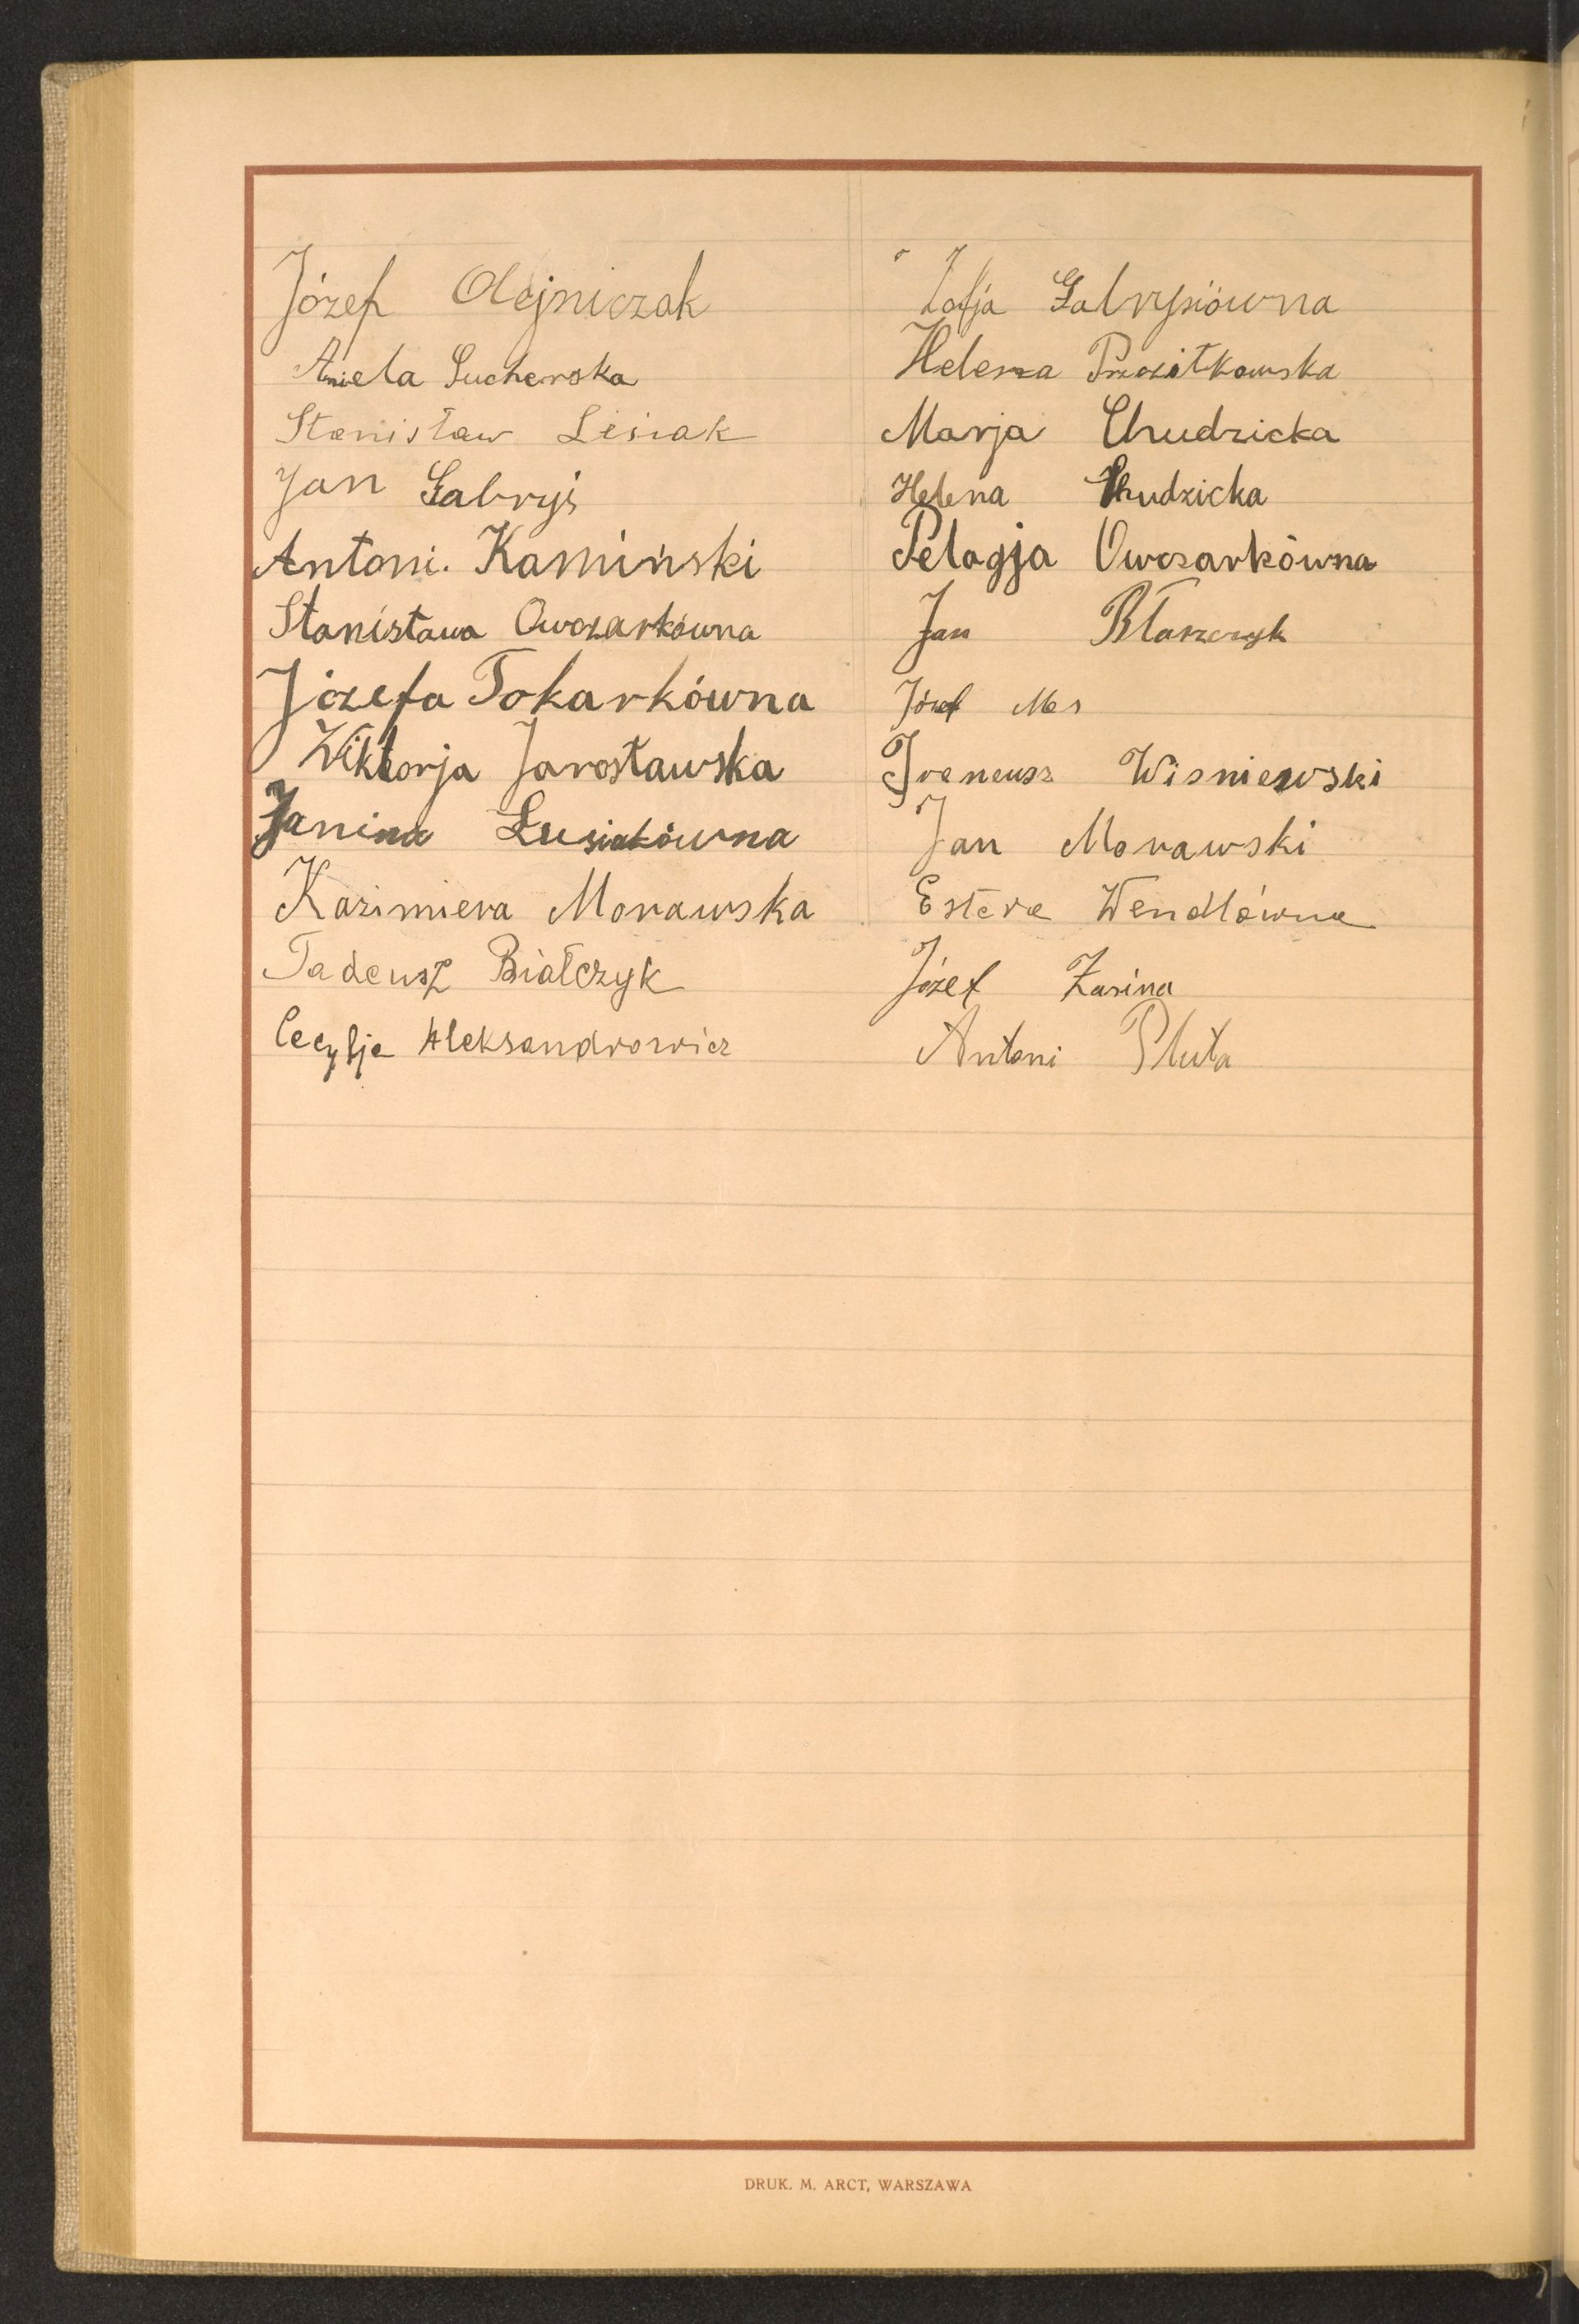 Józef Olejniczak
Aniela Sucherska
Stanisław Lesiak
Jan Gabryś
Antoni. Kamiński
Stanisława Owczarkówna
Józefa Tokarkówna
Wiktorja Jarosławska
Janina Lusiakówna
Kazimiera Morawska
Tadeusz Białczyk
Cecylja Aleksandrowicz
Zofja Gabrysiówna
Helena
Marja Chudzicka
Helena Chudzicka
Pelagja Owczarkówna
Jan Błaszczyk
Józef Mes
Ireneusz Wisniewski
Jan Morawski
Estera Wendlówna
Józef Zasina
Antoni Pluta
DRUK. M. ARCT, WARSZAWA